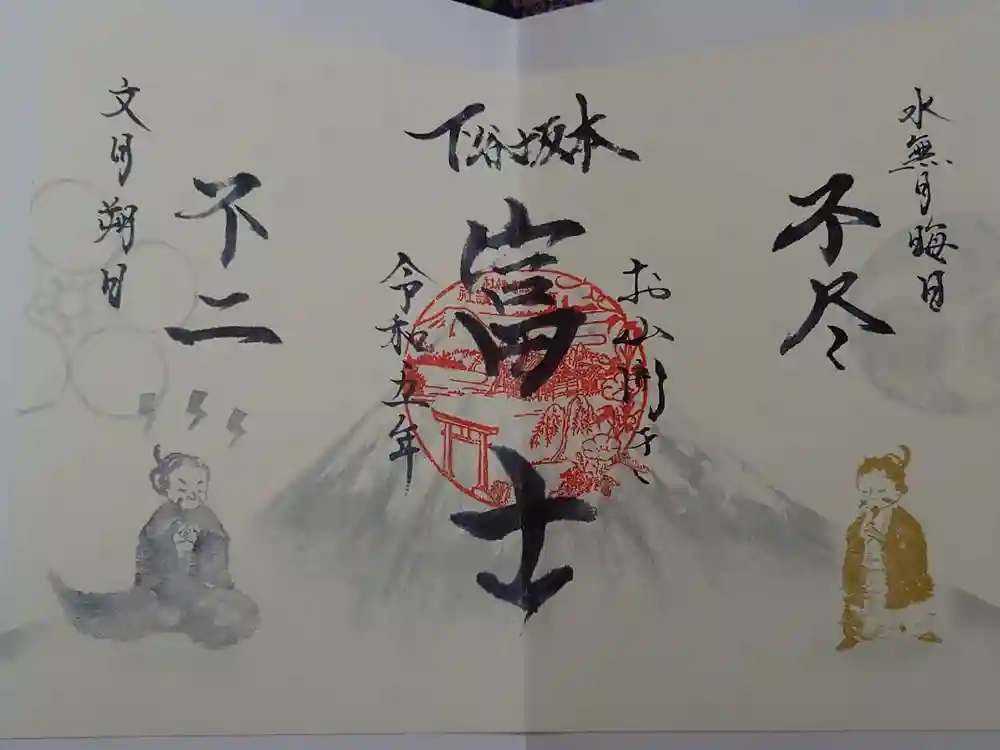 水無月晦日
不尽
お山開き
下谷坂本
富士
令和五年
不二
文月朔日